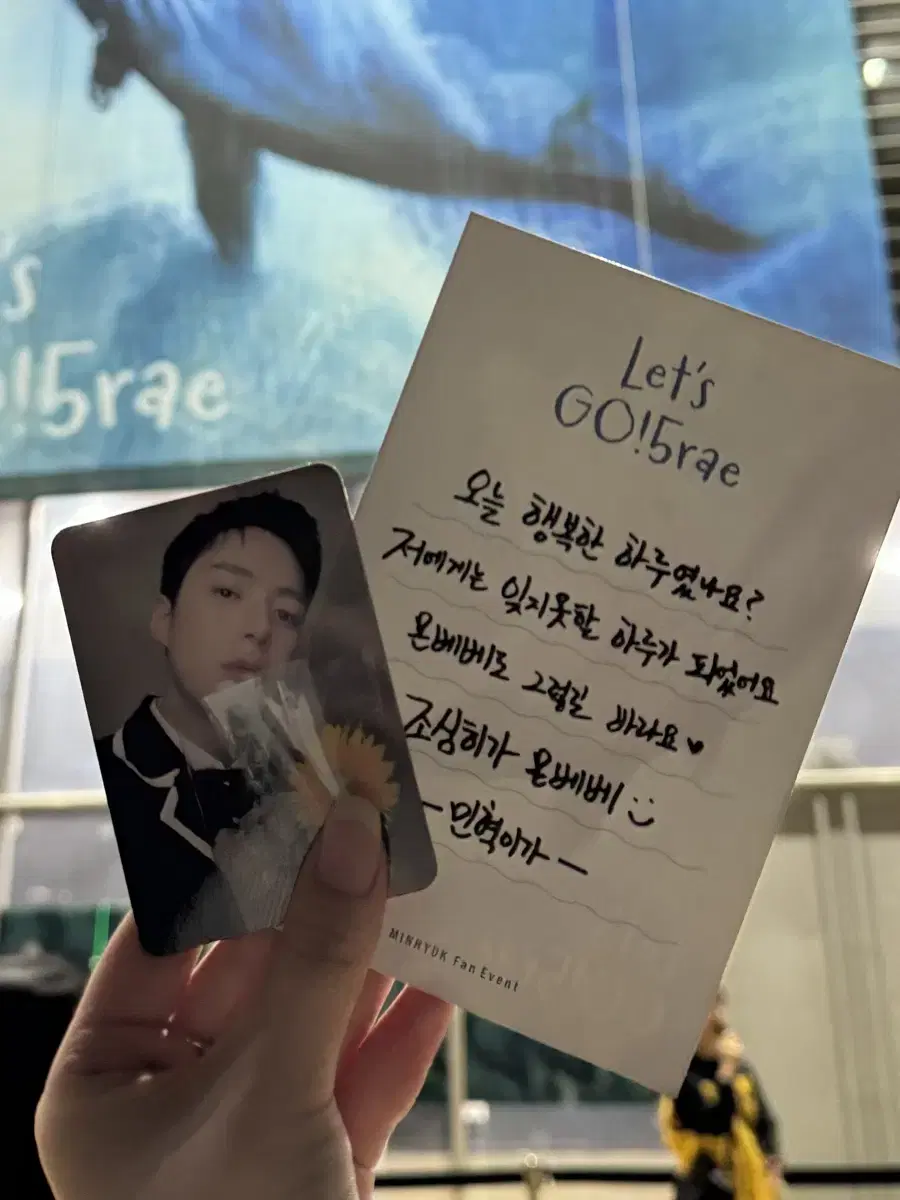 s
o!5rae
Let's
GO!5rae
오늘 행복한 하루였나요?
저에게는 잊지못할 하루가 되었어요
몬베베도 그럴길 바라요♥
조심히가 몬베베 :)
- 민혁이가 -
MINHYUK Fan Event